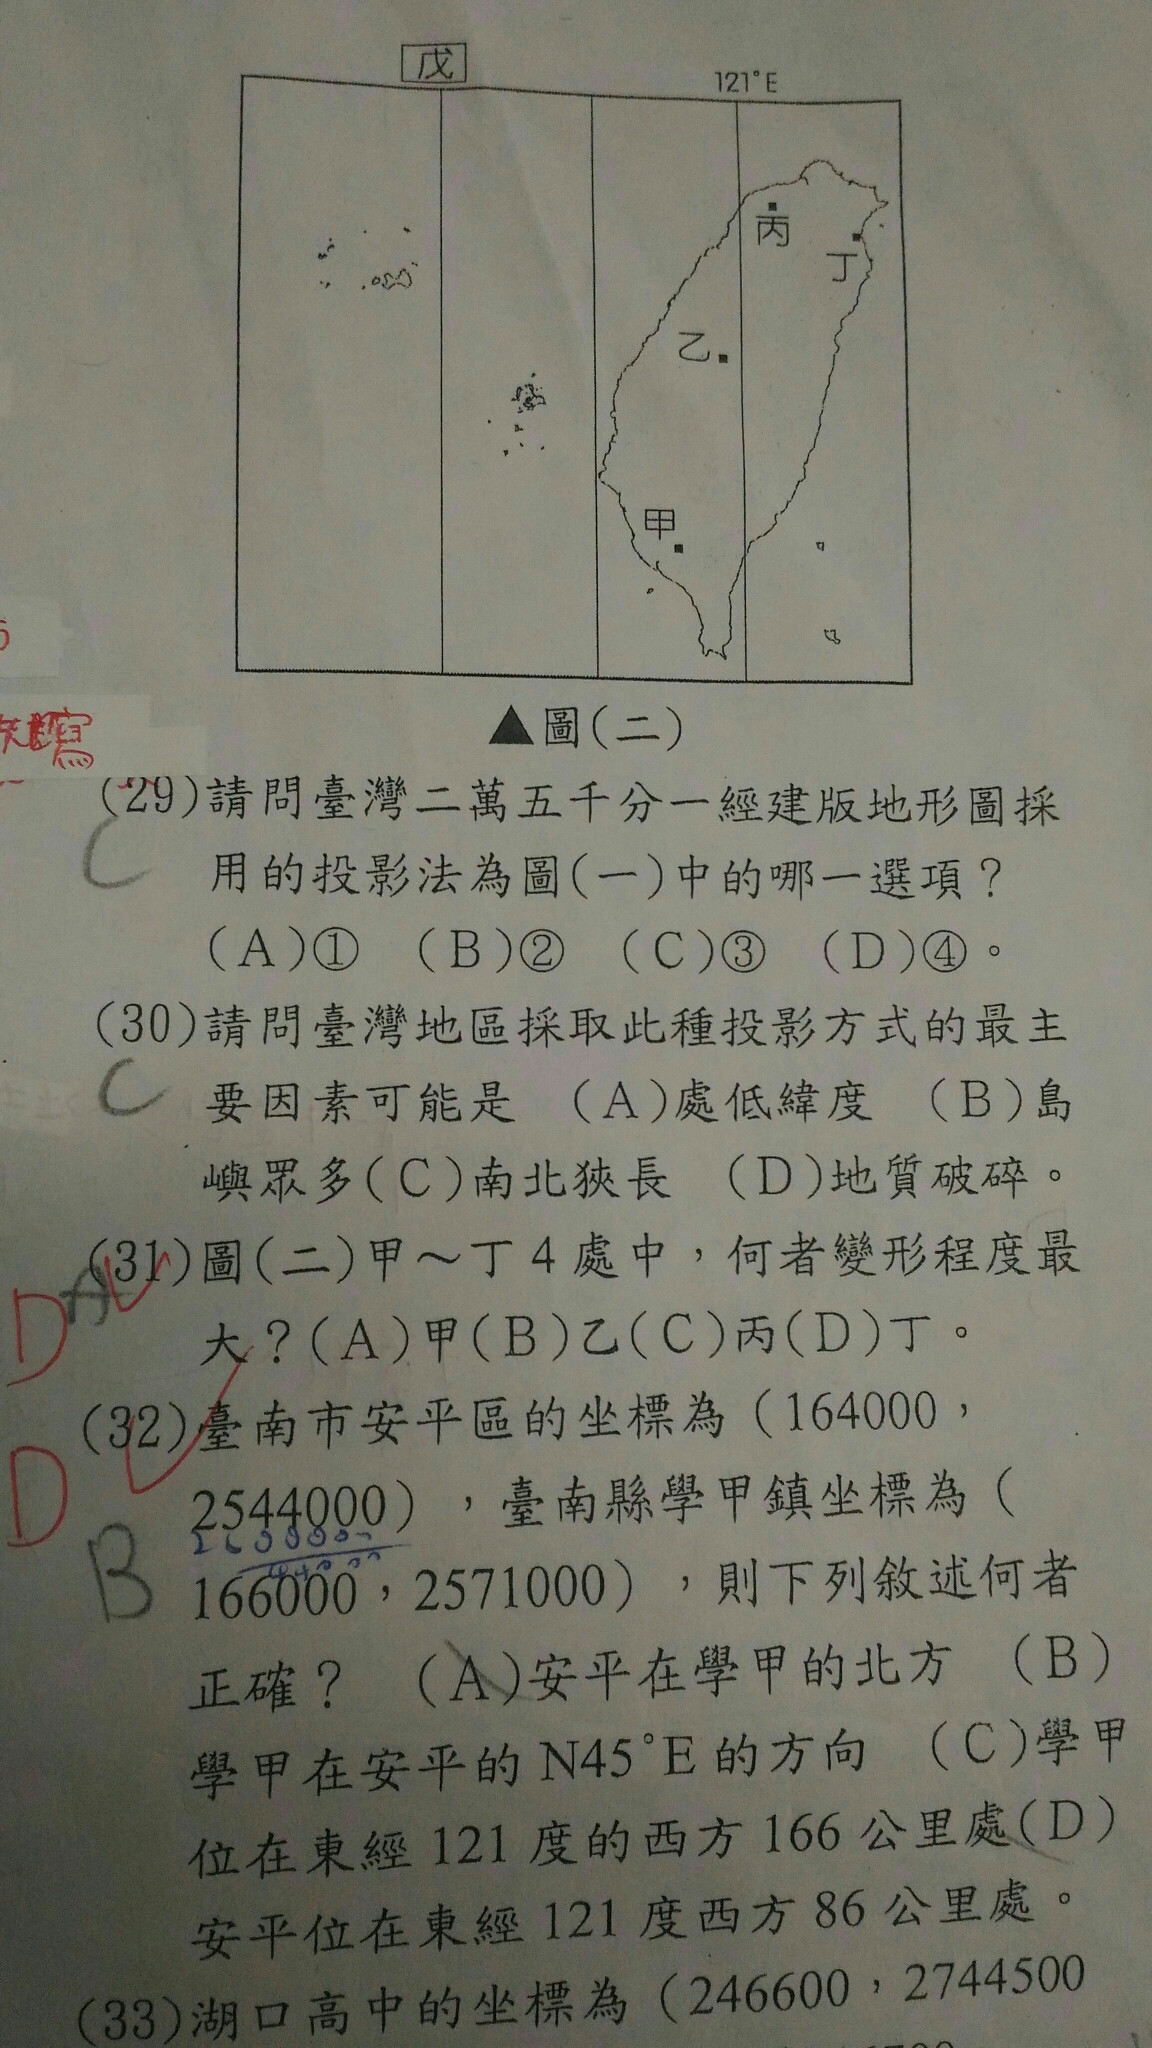 戊
121°E
丙
丁
乙
甲
▲圖(二)
寫
(29)請問臺灣二萬五千分一經建版地形圖採
C
用的投影法為圖(一)中的哪一選項？
(A)① (B)② (C)③ (D)④。
(30)請問臺灣地區採取此種投影方式的最主
C
要因素可能是 (A)處低緯度 (B)島
嶼眾多(C)南北狹長 (D)地質破碎。
(31)圖(二)甲～丁4處中，何者變形程度最
D A
大？(A)甲(B)乙(C)丙(D)丁。
(32)臺南市安平區的坐標為（164000，
D
2544000），臺南縣學甲鎮坐標為（
B
166000，2571000），則下列敘述何者
正確？ (A)安平在學甲的北方 (B)
學甲在安平的N45°E的方向 (C)學甲
位在東經121度的西方166公里處(D)
安平位在東經121度西方86公里處。
(33)湖口高中的坐標為（246600，2744500